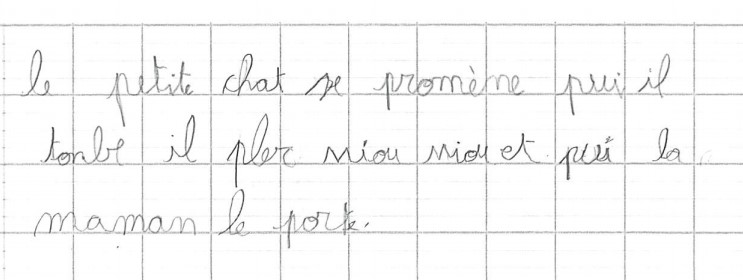 le petite chat se promème pui il
tonbe il pler miou miou et pui la
maman le porte.